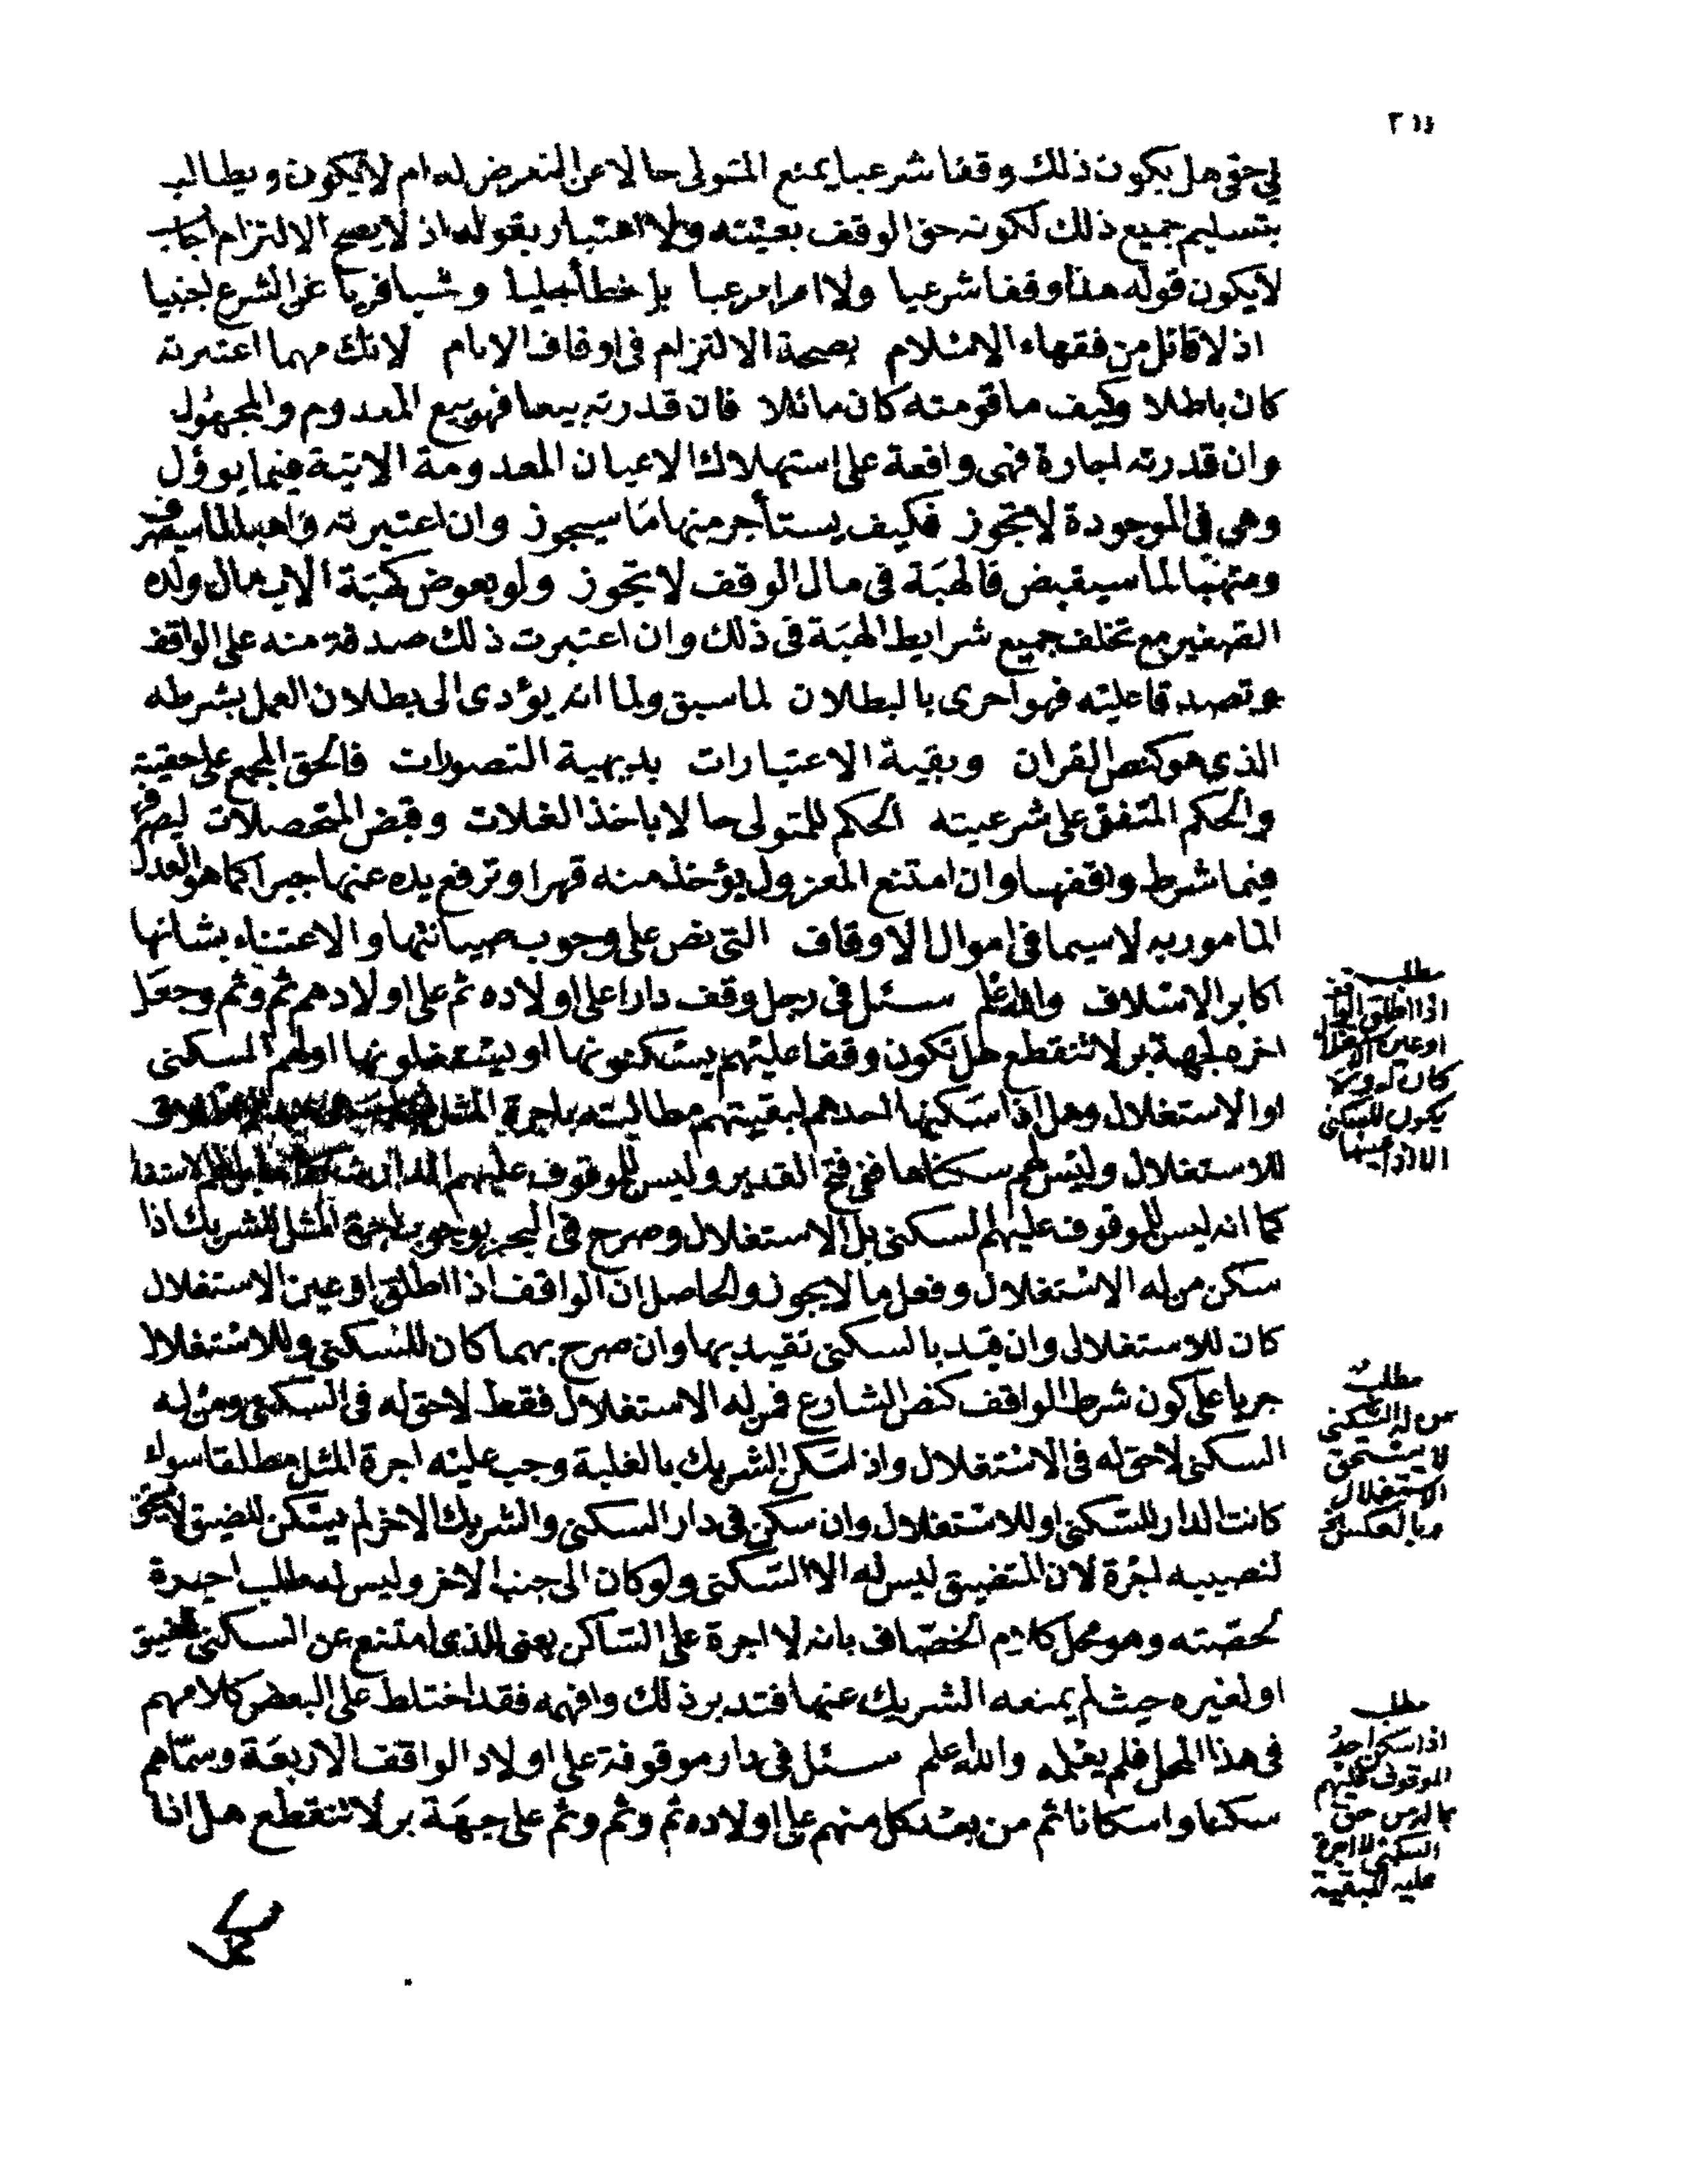 ٢١١
لي حق هل يكون ذلك وقفا شرعيا يمنع المتولى حالا عن التعرض له ام لا يكون ويطالب
بتسليم جميع ذلك لكونه حق الوقف بعينه ولا اعتبار بقوله اذ لا يصح الالتزام اجاب
لا يكون قوله هذا وقفا شرعيا ولا امرا مرعيا بل خطأ جليا وشيا فريا عن الشرع اجنبيا
اذ لا قائل من فقهاء الاسلام بصحة الالتزام فى اوقاف الانام لانك مهما اعتبرته
كان باطلا وكيف ما قومته كان مائلا فان قدرته بيعا فهو بيع المعدوم والمجهول
وان قدرته اجارة فهى واقعة على استهلاك الاعيان المعدومة الاتية فيما يوؤل
وهى فى الموجودة لا تجوز فكيف يستأجر منها ما سيجوز وان اعتبرته واهبا لما سيصرف
ومتهبا لما سيقبض فالهبة فى مال الوقف لا تجوز ولو بعوض كهبة الاب مال ولده
الصغير مع تخلف جميع شرايط الهبة فى ذلك وان اعتبرت ذلك صدقة منه على الواقف
وتصدقا عليه فهو احرى بالبطلان لما سبق ولما انه يؤدى الى بطلان العمل بشرطه
الذى هو كنص القران وبقية الاعتبارات بديهية التصورات فالحق المجمع على حقيته
والحكم المتفق على شرعيته الحكم للمتولى حالا باخذ الغلات وقبض المتحصلات ليصرفها
فيما شرط واقفها وان امتنع المعزول يؤخذ منه قهرا وترفع يده عنها جبرا كما هو العدل
المامور به لا سيما فى اموال الاوقاف التى نص على وجوب صيانتها والاعتناء بشانها
اكابر الاسلاف والله اعلم سئل فى رجل وقف دارا على اولاده ثم على اولادهم ثم وثم وجعل
اخره لجهة بر لا تنقطع هل تكون وقفا عليهم يستكنونها او يستغلونها او لهم السكنى
او الاستغلال وهل اذا سكنها احدهم لبقيتهم مطالبته باجرة المثل
للاستغلال وليس لهم سكناها ففى فتح القدير وليس للموقوف عليهم الدار الاستغلا
كما انه ليس للموقوف عليهم السكنى بل الاستغلال وصرح فى البحر بوجوب اجرة المثل للشريك اذا
سكن من له الاستغلال وفعل ما لا يجوز والحاصل ان الواقف اذا اطلق او عين الاستغلال
كان للاستغلال وان قيد بالسكنى تقيد بها وان صرح بهما كان للسكنى وللاستغلال
جريا على كون شرط الواقف كنص الشارع فمن له الاستغلال فقط لا حق له فى السكنى ومن له
السكنى لا حق له فى الاستغلال واذا سكن الشريك بالغلبة وجب عليه اجرة المثل مطلقا سواء
كانت الدار للسكنى او للاستغلال وان سكن فى دار السكنى والشريك الاخر لم يسكن للضيق لا يستحق
لنصيبه اجرة لان المتضيق ليس له الا السكنى ولو كان الى جنب الاخر وليس له مطلب اجرة
لحصته وهو محمل كلام الخصاف بانه لا اجرة على الساكن يعنى للذى امتنع عن السكنى للضيق
او لغيره حيث لم يمنعه الشريك عنها فتدبر ذلك وافهمه فقد اختلط على البعض كلامهم
فى هذا المحل فلم يعلمه والله اعلم سئل فى دار موقوفة على اولاد الواقف الاربعة وسماهم
سكنا واسكانا ثم من بعد كل منهم على اولاده ثم وثم وثم على جهة بر لا تنقطع هل اذا
مطلب
اذا اطلق الواقف
او عين الاستغلال
كان له ولا
يكون للسكنى
الا اذا عينها
مطلب
من له السكنى
لا يستحق
الاستغلال
وبالعكس
مطلب
اذا سكن احد
الموقوف عليهم
حق
السكنى لا اجرة
عليه للبقية